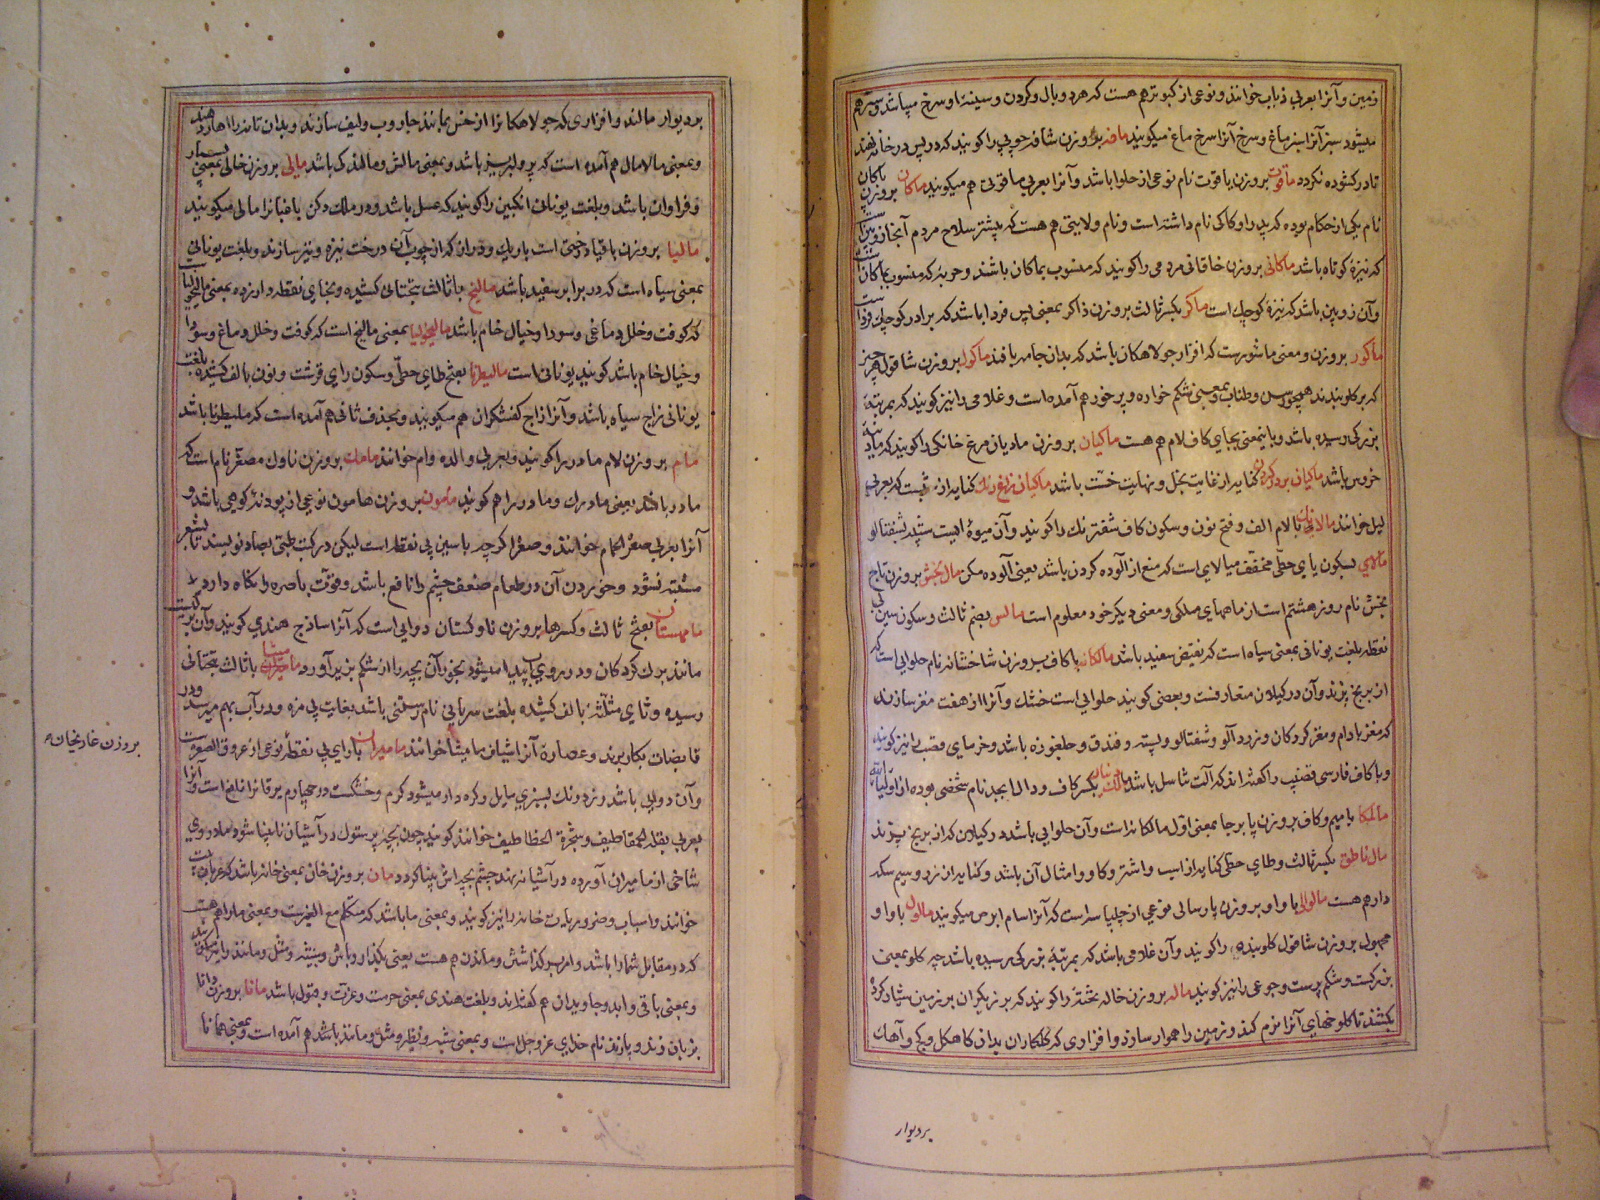 زمین و آنرا بعربی ذباب خوانند و نوعی از کبوتر هم هست که هر دو بال و گردن و سینهٔ او سرخ میباشد و سبز هم
میشود سبز آنرا سبز ماغ و سرخ آنرا سرخ ماغ میکویند مافه بر وزن شافه چوبی را کویند که در پس در خانه نهند
تا در کشوده نکردد ماقوت بر وزن یاقوت نام نوعی از حلوا باشد و آنرا بعربی ماقوتی هم میکویند ماکان بر وزن پاکان
نام یکی از حکام بوده که پدر او کاکی نام داشته است و نام ولایتی هم هست که بیشتر سلاح مردم آنجا زوبین است
که نیزهٔ کوتاه باشد ماکانی بر وزن خاقانی مردمی را کویند که منسوب بماکان باشند و حربهٔ که منسوب بماکان است
و آن زوبین باشد که نیزهٔ کوچک است ماکر بکسر ثالث بر وزن ذاکر بمعنی پس فردا باشد که برادر کوچک فرداست
ماکور بر وزن و معنی ماشورست که افزار جولاهکان باشد که بدان جامه بافند ماکول بر وزن شاقول هر چیز
که بر کلو بندند همچو رسن و طناب و بمعنی شکم خواره و پرخور هم آمده است و غلامی را نیز کویند که بمرتبهٔ
بزرکی رسیده باشد و باینمعنی بجای کاف لام هم هست ماکیان بر وزن مادیان مرغ خانکی را کویند که مادینهٔ
خروس باشد ماکیان بر در کردن کنایه از غایت بخل و نهایت خست باشد ماکیان زاغ رنک کنایه از شبست که بعربی
لیل خوانند مالانک با لام الف و فتح نون و سکون کاف شفترنک را کویند و آن میوهٔ ایست شبیه بشفتالو
مالای بسکون یای حطی مخفف میالای است که منع از آلوده کردن باشد یعنی آلوده مکن مال بخش بر وزن تاج
بخش نام روز هشتم است از ماههای ملکی و معنی دیکر خود معلوم است مالس بضم ثالث و سکون سین بی
نقطه بلغت یونانی بمعنی سیاه است که نقیض سفید باشد مالکانه با کاف بر وزن شاخشانه نام حلوایی است که
از برنج پزند و آن در کیلان متعارفست و بعضی کویند حلوایی است خشک و آنرا از هفت مغز سازند
که مغز بادام و مغز کردکان و زردآلو و شفتالو و پسته و فندق و جلغوزه باشد و خرمای و قصب را نیز کویند
و با کاف فارسی قضیب را کفته اند که آلت تناسل باشد مالک دینار بکسر کاف و دال ابجد نام شخصی بوده از اولیاءالله
مالمکا با میم و کاف بر وزن پابرجا بمعنی اول مالکانه است و آن حلوایی باشد در کیلان که از برنج پزند
مال ناطق بکسر ثالث و طای حطی کنایه از اسب و اشتر و کاو و امثال آن باشد و کنایه از زر و سیم سکه
دار هم هست مالوالی با واو بر وزن پارسالی نوعی از چلپاسه است که آنرا سام ابرص میکویند مالول با واو
مجهول بر وزن شاقول کلو بنده را کویند و آن غلامی باشد که بمرتبهٔ بزرکی رسیده باشد چه کلو بمعنی
بزرکست و شکم پرست و جوعی را نیز کویند ماله بر وزن خاله تختهٔ را کویند که برزیکران بر زمین شیار کرده
بکشند تا کلوخهای آنرا نرم کند و زمین را هموار سازد و افزاری که کلکاران بدان کاهکل و کچ و آهک
بر دیوار
بر دیوار مالند و افزاری که جولاهکانرا از خس مانند جاروب و لیف سازند و بدان تانه را اهار دهند
و بمعنی مالامال هم آمده است که پر و لبریز باشد و بمعنی مالش و مالندکی باشد مالی بر وزن خالی بمعنی بسیار
و فراوان باشد و بلغت یونانی انکبین را کویند که عسل باشد و در ملک دکن باغبانرا مالی میکویند
مالیا بر وزن باقیا درختی است باریک و دراز که از چوب آن درخت نیزه و تیر سازند و بلغت یونانی
بمعنی سیاه است که در برابر سفید باشد مالیخ با ثالث بتحتانی کشیده و بخای نقطه دار زده بمعنی مالیخولیاست
که کوفت و خلل دماغی و سودا و خیال خام باشد مالیخولیا بمعنی مالیخ است که کوفت و خلل دماغ و سودا
و خیال خام باشد کویند یونانی است مالیطرنا بفتح طای حطی و سکون رای قرشت و نون بالف کشیده بلغت
یونانی زاج سیاه باشد و آنرا زاج کفشکران هم میکویند و بحذف ثانی هم آمده است که ملیطرنا باشد
مام بر وزن لام مادر را کویند و بعربی والده و ام خوانند مامک بر وزن ناوک مصغر مام است که
مادر باشد یعنی مادرک و مادر را هم کویند مامون بر وزن هامون نوعی از پودنهٔ کوهی باشد و
آنرا بعربی صعتر الحمام خوانند و صعتر اکر چه با سین بی نقطه است لیکن در کتب طبی بصاد نویسند تا بشعیر
مشتبه نشود و خوردن آن در طعام ضعف چشم را نافع باشد و قوت باصره را نکاه دارد
مامهستان بفتح ثالث و کسر ها بر وزن ناوکستان دوایی است که آنرا ساذج هندی کویند و آن برکیست
مانند برک کردکان و در روی آب پیدا میشود بخور آن بچه را از شکم بزیر آورد مامیثا با ثالث بتحتانی
رسیده و ثای مثلثه بالف کشیده بلغت سریانی نام رستنی باشد بغایت بی مزه و در آب بهم میرسد و در
قابضات بکار برند و عصارهٔ آنرا شیاف مامیثا خوانند مامیران با رای بی نقطه نوعی از عروق الصفر است
بر وزن غارنجیان
و آن دوایی باشد زرد رنک بسبزی مایل و کره دار میشود کرم و خشکست در چهارم یرقانرا نافع است و آنرا
بعربی بقلة الخطاطیف و شجرة الخطاطیف خوانند کویند چون بچهٔ پرستوک در آشیان نابینا شود مادر وی
شاخی از مامیران آورده در آشیانه نهد چشم بچه اش بینا کردد مان بر وزن خان بمعنی خانه باشد که عربان بیت
خوانند و اسباب و ضروریات خانه را نیز کویند و بمعنی ما باشد که متکلم مع الغیرست و بمعنی ما را هم هست
که در مقابل شما را باشد و امر بر کذاشتن و ماندن هم هست یعنی بکذار و باش و شبیه و مثل و مانند را نیز کویند
و بمعنی باقی و ابد و جاویدان هم کفته اند و بلغت هندی بمعنی حرمت و عزت و قبول باشد مانا بر وزن دانا
بزبان زند و پازند نام خدای عز و جل است و بمعنی شبیه و نظیر و مثل و مانند باشد هم آمده است و بمعنی همانا